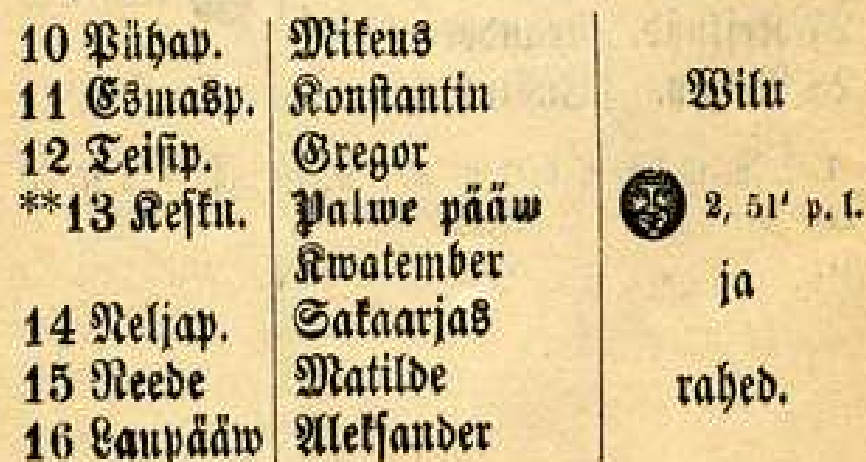 10 Pühap. Mikeus
11 Esmasp. Konstantin Wilu
12 Teisip. Gregor
**13 Keskn. Palwe pääw 2, 51' p. l.
Kwatember ja
14 Neljap. Sakaarjas
15 Reede Matilde rahed.
16 Laupääw Aleksander